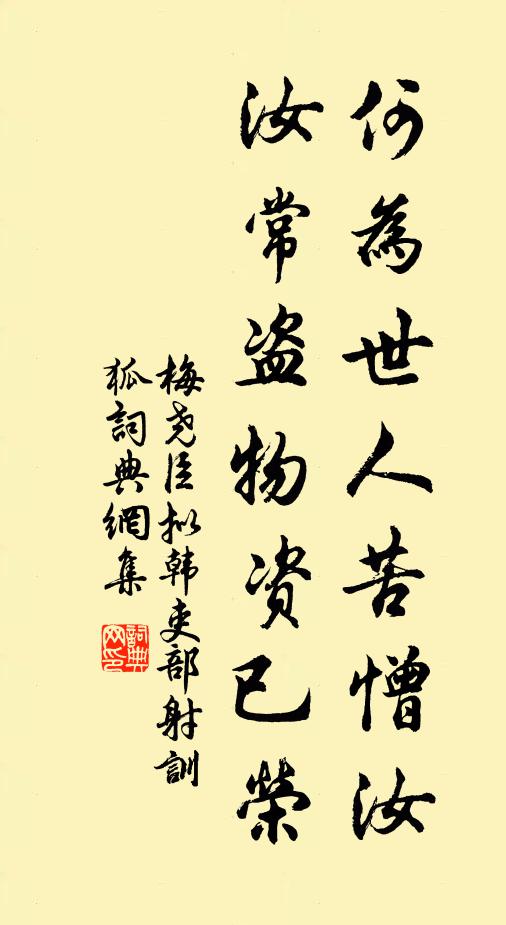 何為世人苦憎汝
汝常盗物資已榮
梅尧臣拟韩吏部射訓
狐詞典網集
詞典
网印